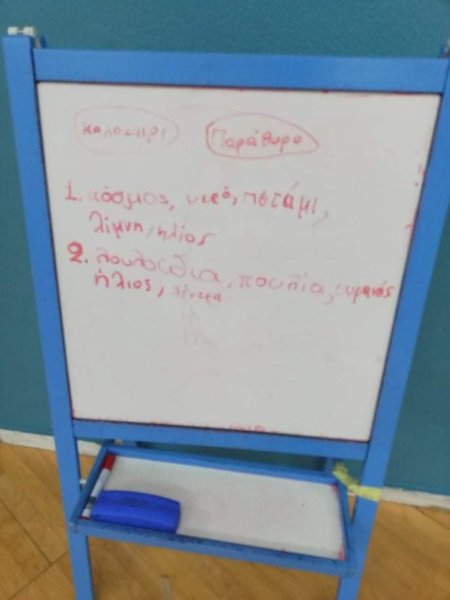 καλοκαίρι Παράθυρο
1. κόσμος, νερό, ποτάμι,
λίμνη, ηλίος
2. λουλούδια, πουλιά, ουρανός
ήλιος, δέντρα